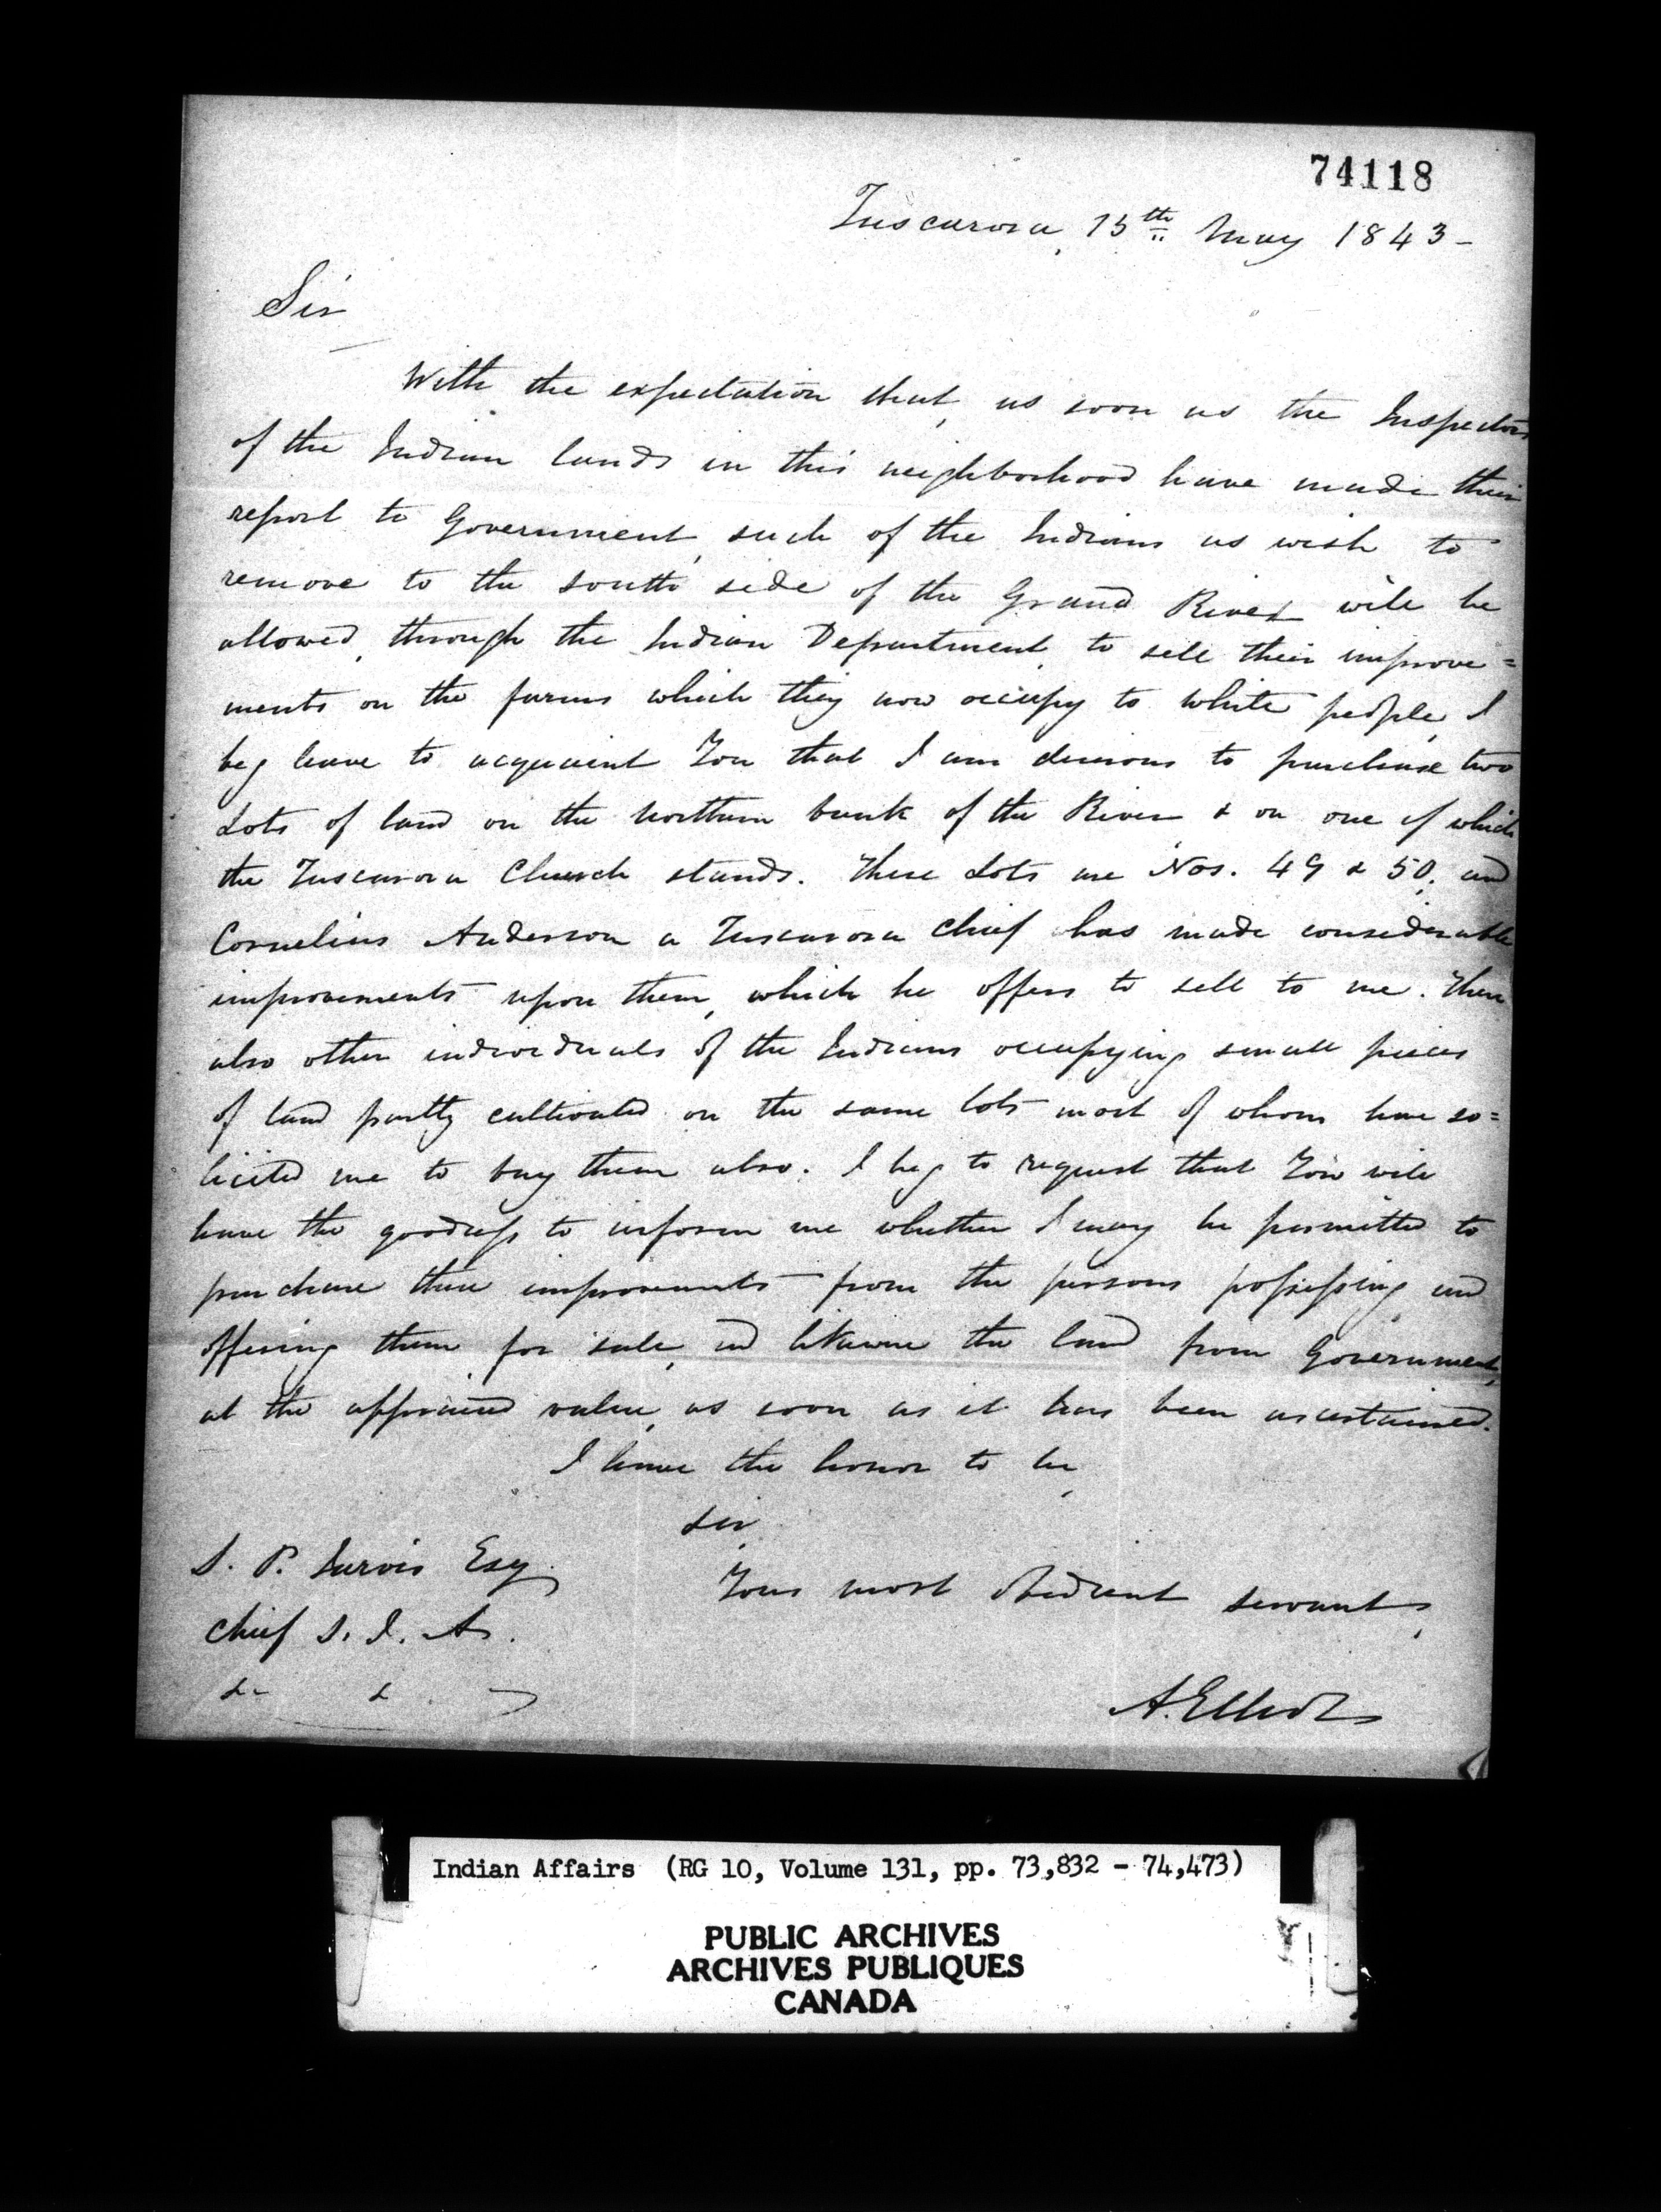 74118
Tuscarora, 15th May 1843 -
Sir
With the expectation that, as soon as the Inspectors
of the Indian lands in this neighborhood have made their
report to Government, such of the Indians as wish to
remove to the south side of the Grand River will be
allowed, through the Indian Department, to sell their improve=
ments on the farms which they now occupy to white people, I
beg leave to acquaint You that I am desirous to purchase two
Lots of land on the northern bank of the River & on one of which
the Tuscarora Church stands. These Lots are Nos. 49 & 50; and
Cornelius Anderson a Tuscarora Chief has made considerable
improvements upon them, which he offers to sell to me. There
also other individuals of the Indians occupying small pieces
of land partly cultivated on the same lots most of whom have so=
licited me to buy them also. I beg to request that You will
have the goodness to inform me whether I may be permitted to
purchase these improvements from the persons possessing and
offering them for sale, and likewise the land from Government,
at the appraised value, as soon as it has been ascertained.
I have the honor to be,
Sir,
S. P. Jarvis Esq
Your most obedient servant,
Chief S. I. A.
&- &
A. Elliot
Indian Affairs (RG 10, Volume 131, pp. 73,832 - 74,473)
PUBLIC ARCHIVES
ARCHIVES PUBLIQUES
CANADA